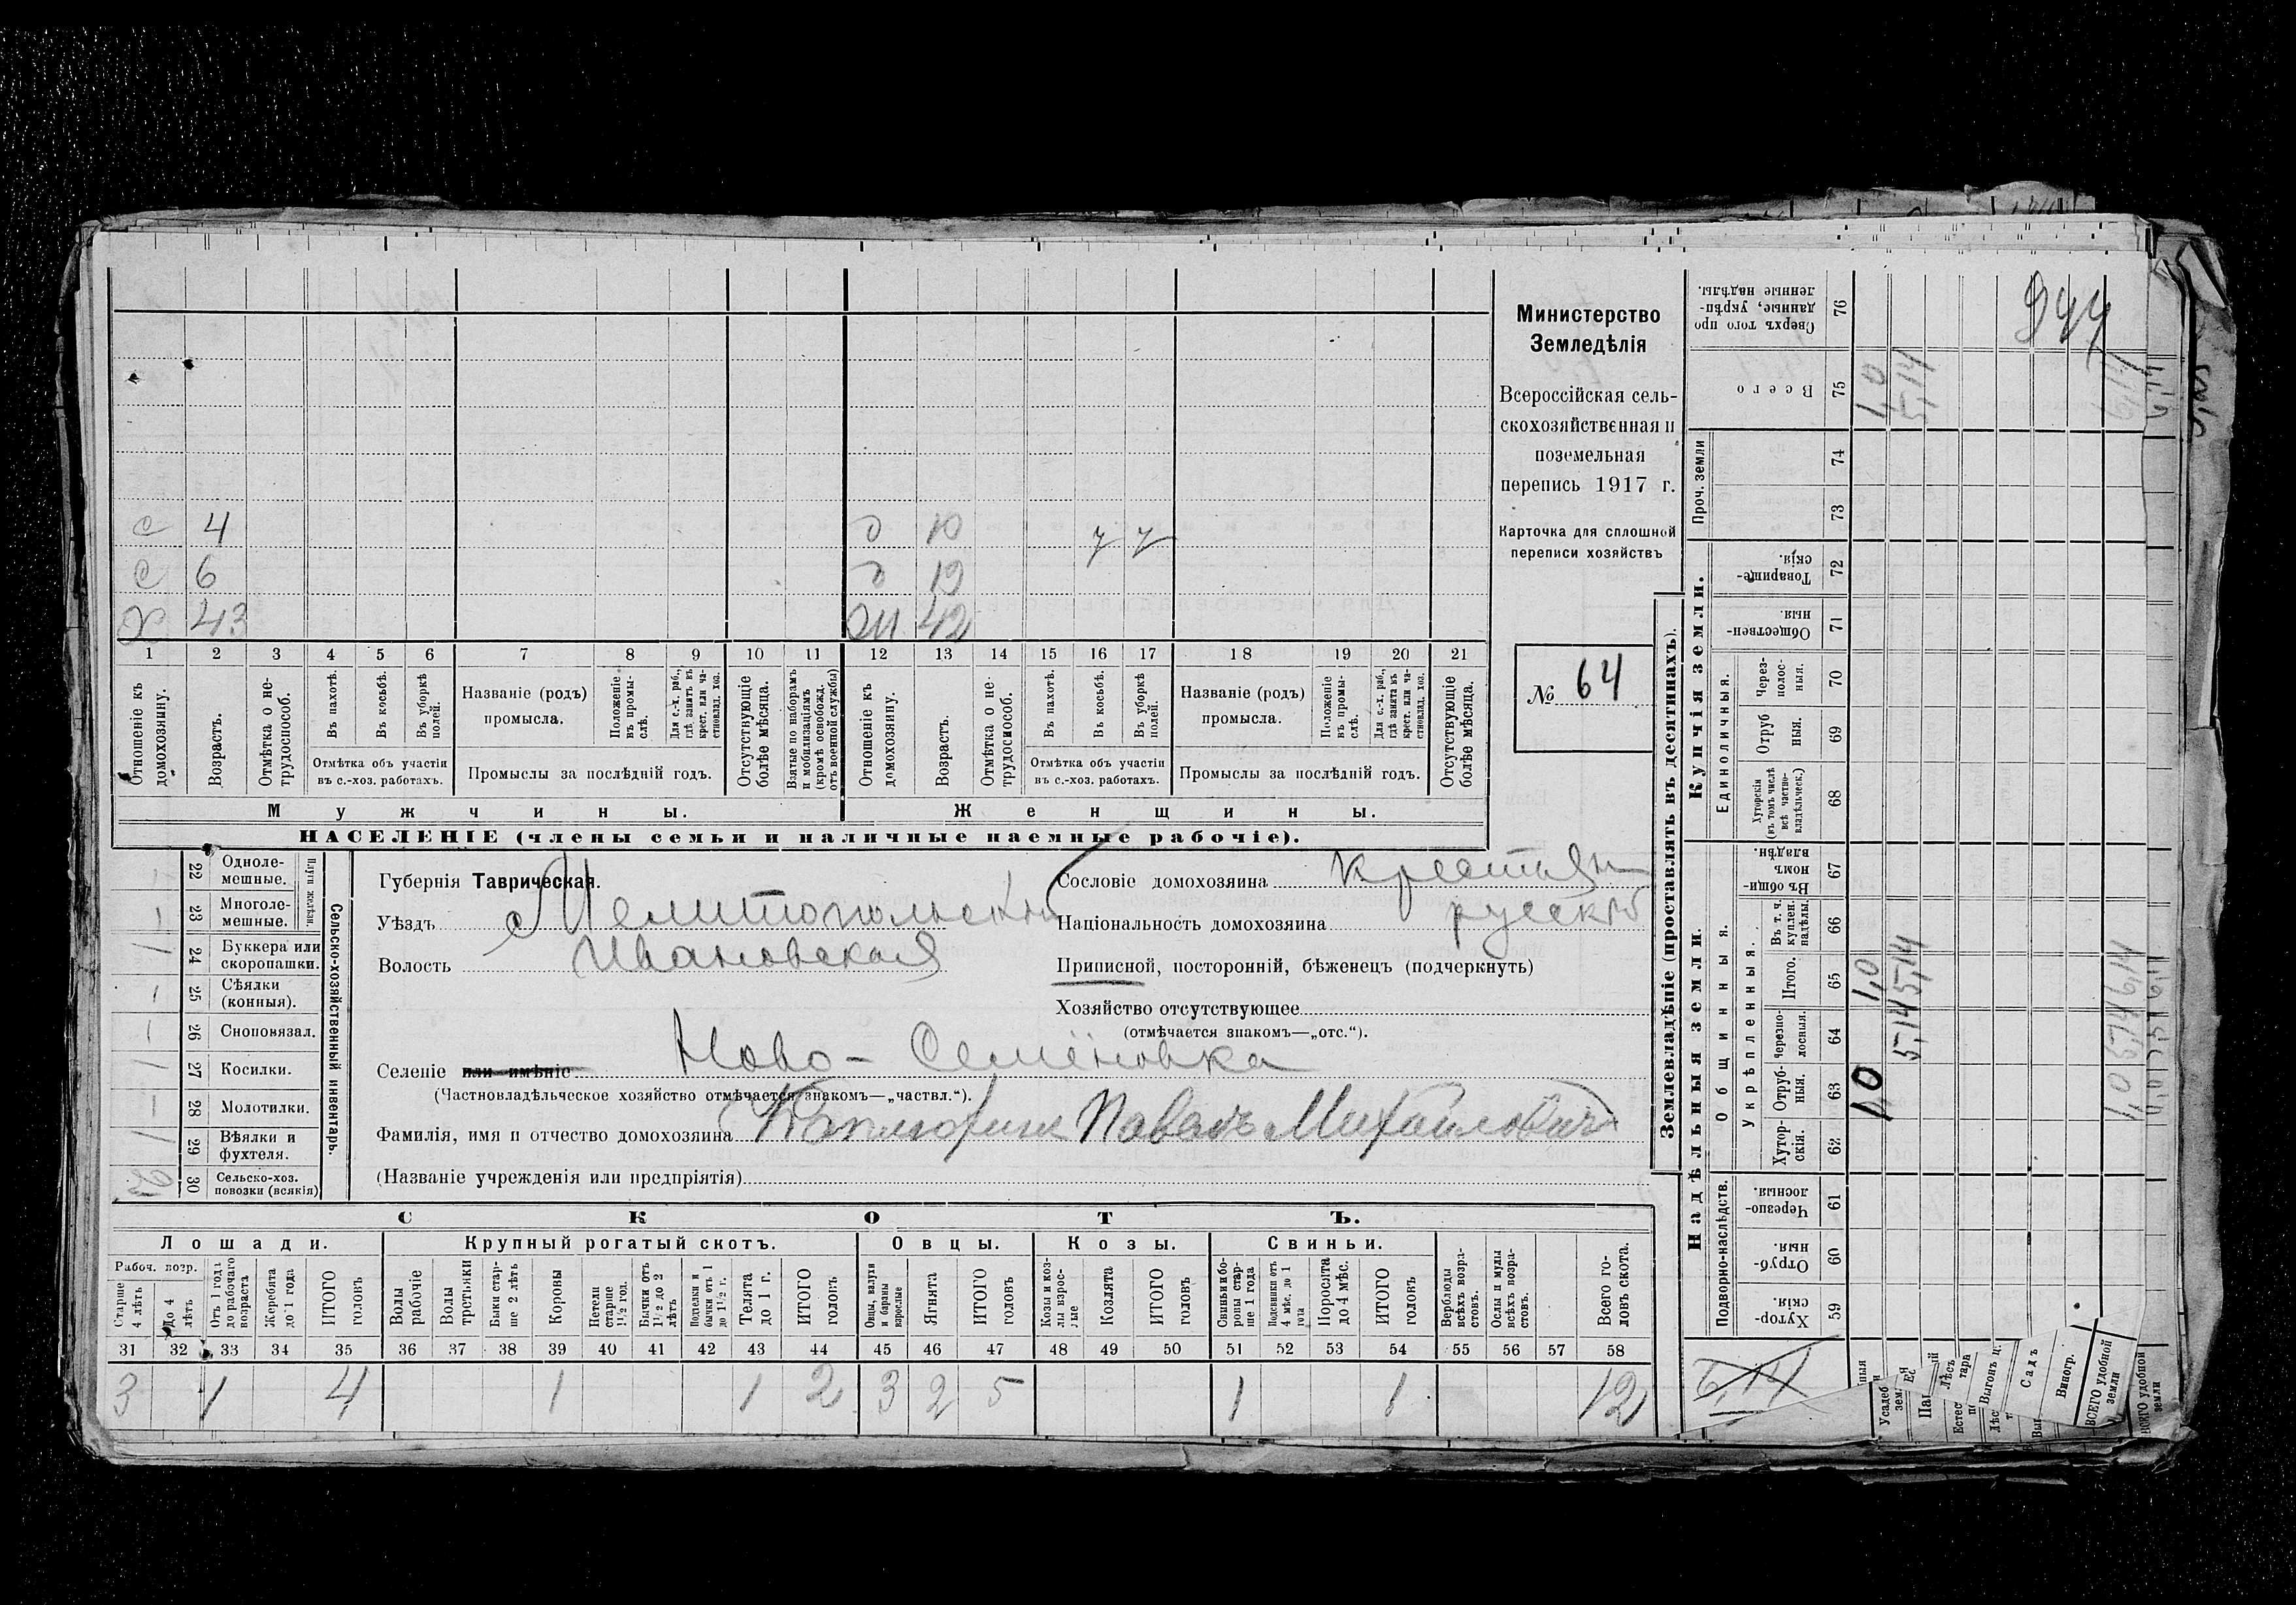 944
Министерство
Земледѣлія
Всероссійская сель-
скохозяйственная и
поземельная
перепись 1917 г.
Карточка для сплошной
переписи хозяйствъ
№ 64
с 4 д 10 7 7
с 6 д 19
х 43 ж 42
1 2 3 4 5 6 7 8 9 10 11 12 13 14 15 16 17 18 19 20 21
Отношеніе къ домохозяину.
Возрастъ.
Отмѣтка о не-
трудоспособ.
Въ пахотѣ.
Въ косьбѣ.
Въ уборкѣ
полей.
Отмѣтка объ участіи
въ с.-хоз. работахъ.
Названіе (родъ)
промысла.
Положеніе
въ промы-
слѣ.
Для с.-х. раб.,
гдѣ занятъ въ
крест. или ча-
стновлад. хоз.
Промыслы за послѣдній годъ.
Отсутствующіе
болѣе мѣсяца.
Взятые по наборамъ
и мобилизаціямъ
(кромѣ освобожд.
отъ военной службы)
Отношеніе къ
домохозяину.
Возрастъ.
Отмѣтка о не
трудоспособ.
Въ пахотѣ.
Въ косьбѣ.
Въ уборкѣ
полей.
Отмѣтка объ участіи
въ с.-хоз. работахъ.
Названіе (родъ)
промысла.
Положеніе
въ промы-
слѣ.
Для с.-х. раб.,
гдѣ занята въ
крест. или ча-
стновлад. хоз.
Промыслы за послѣдній годъ.
Отсутствующіе
болѣе мѣсяца.
Мужчины. Женщины.
НАСЕЛЕНІЕ (члены семьи и наличные наемные рабочіе).
22 Одноле-
мешные.
23 Многоле-
мешные.
Плуги желѣзн
24 Буккера или
скоропашки.
25 Сѣялки
(конныя).
26 Сноповязал.
27 Косилки.
28 Молотилки.
29 Вѣялки и
фухтеля.
30 Сельско-хоз.
повозки (всякія)
Сельско-хозяйственный инвентарь.
Губернія Таврическая.
Уѣздъ Мелитопольскій
Волость Ивановская
Сословіе домохозяина крестьян
Національность домохозяина русскій
Приписной, посторонній, бѣженецъ (подчеркнуть)
Хозяйство отсутствующее
(отмѣчается знакомъ—„отс.“).
Селеніе или имѣніе Ново-Семёновка
(Частновладѣльческое хозяйство отмѣчается знакомъ—„частвл.“).
Фамилія, имя и отчество домохозяина Павелъ Михайловичъ
(Названіе учрежденія или предпріятія)
СКОТЪ.
Лошади. Крупный рогатый скотъ. Овцы. Козы. Свиньи.
Рабоч. возр.
Старше
4 лѣтъ
До 4
лѣтъ
Отъ 1 года
до рабочаго
возраста
Жеребята
до 1 года
ИТОГО
головъ
Волы
рабочіе
Волы
Быки стар-
ше 2 лѣтъ
Коровы
Нетели
старше
1½ год.
Бычки отъ
1½ до 2
лѣтъ
Подтелки и
бычки отъ 1
до 1½ г.
Телята
до 1 г.
ИТОГО
головъ
Овцы, валухи
и бараны
взрослые
Ягнята
ИТОГО
головъ
Козы и коз-
лы взрос-
лые
Козлята
ИТОГО
головъ
Свиньи и бо-
ровы стар-
ше 1 года
Подсвинки отъ
4 мѣс. до 1
года
Поросята
до 4 мѣс.
ИТОГО
головъ
Верблюды
всѣхъ возра-
стовъ.
Ослы и мулы
всѣхъ возра-
стовъ.
Всего го-
ловъ скота.
31 32 33 34 35 36 37 38 39 40 41 42 43 44 45 46 47 48 49 50 51 52 53 54 55 56 57 58
3 1 4 1 1 2 3 2 5 1 1 12
Землевладѣніе (проставлять въ десятинахъ).
Надѣльныя земли. Купчія земли. Проч. земли
Подворно-наслѣдств.
Общинныя.
Укрѣпленныя.
Единоличныя.
Хутор-
скія. 59
Отруб-
ныя. 60
Черезпо-
лосныя. 61
Хутор-
скія. 62
Отруб-
ныя. 63
Черезпо-
лосныя. 64
Итого. 65
Въ т. ч.
куплен.
надѣлы. 66
Въ общи-
номъ
владѣн. 67
Хуторскія
(въ томъ числѣ
всѣ частно-
владѣльческ.) 68
Отруб
ныя. 69
Через-
полос-
ныя. 70
Обществен-
ныя. 71
Товарище-
скія. 72
73 74
Всего 75
Сверхъ того про
данные, укрѣп-
ленные надѣлы. 76
1,0 1,0 1,0
5,14 5,14 5,14
1,0 5,14 6,14 6,14
6,14
Усадеб
Садъ
Виногр.
ВСЕГО удобной
земли